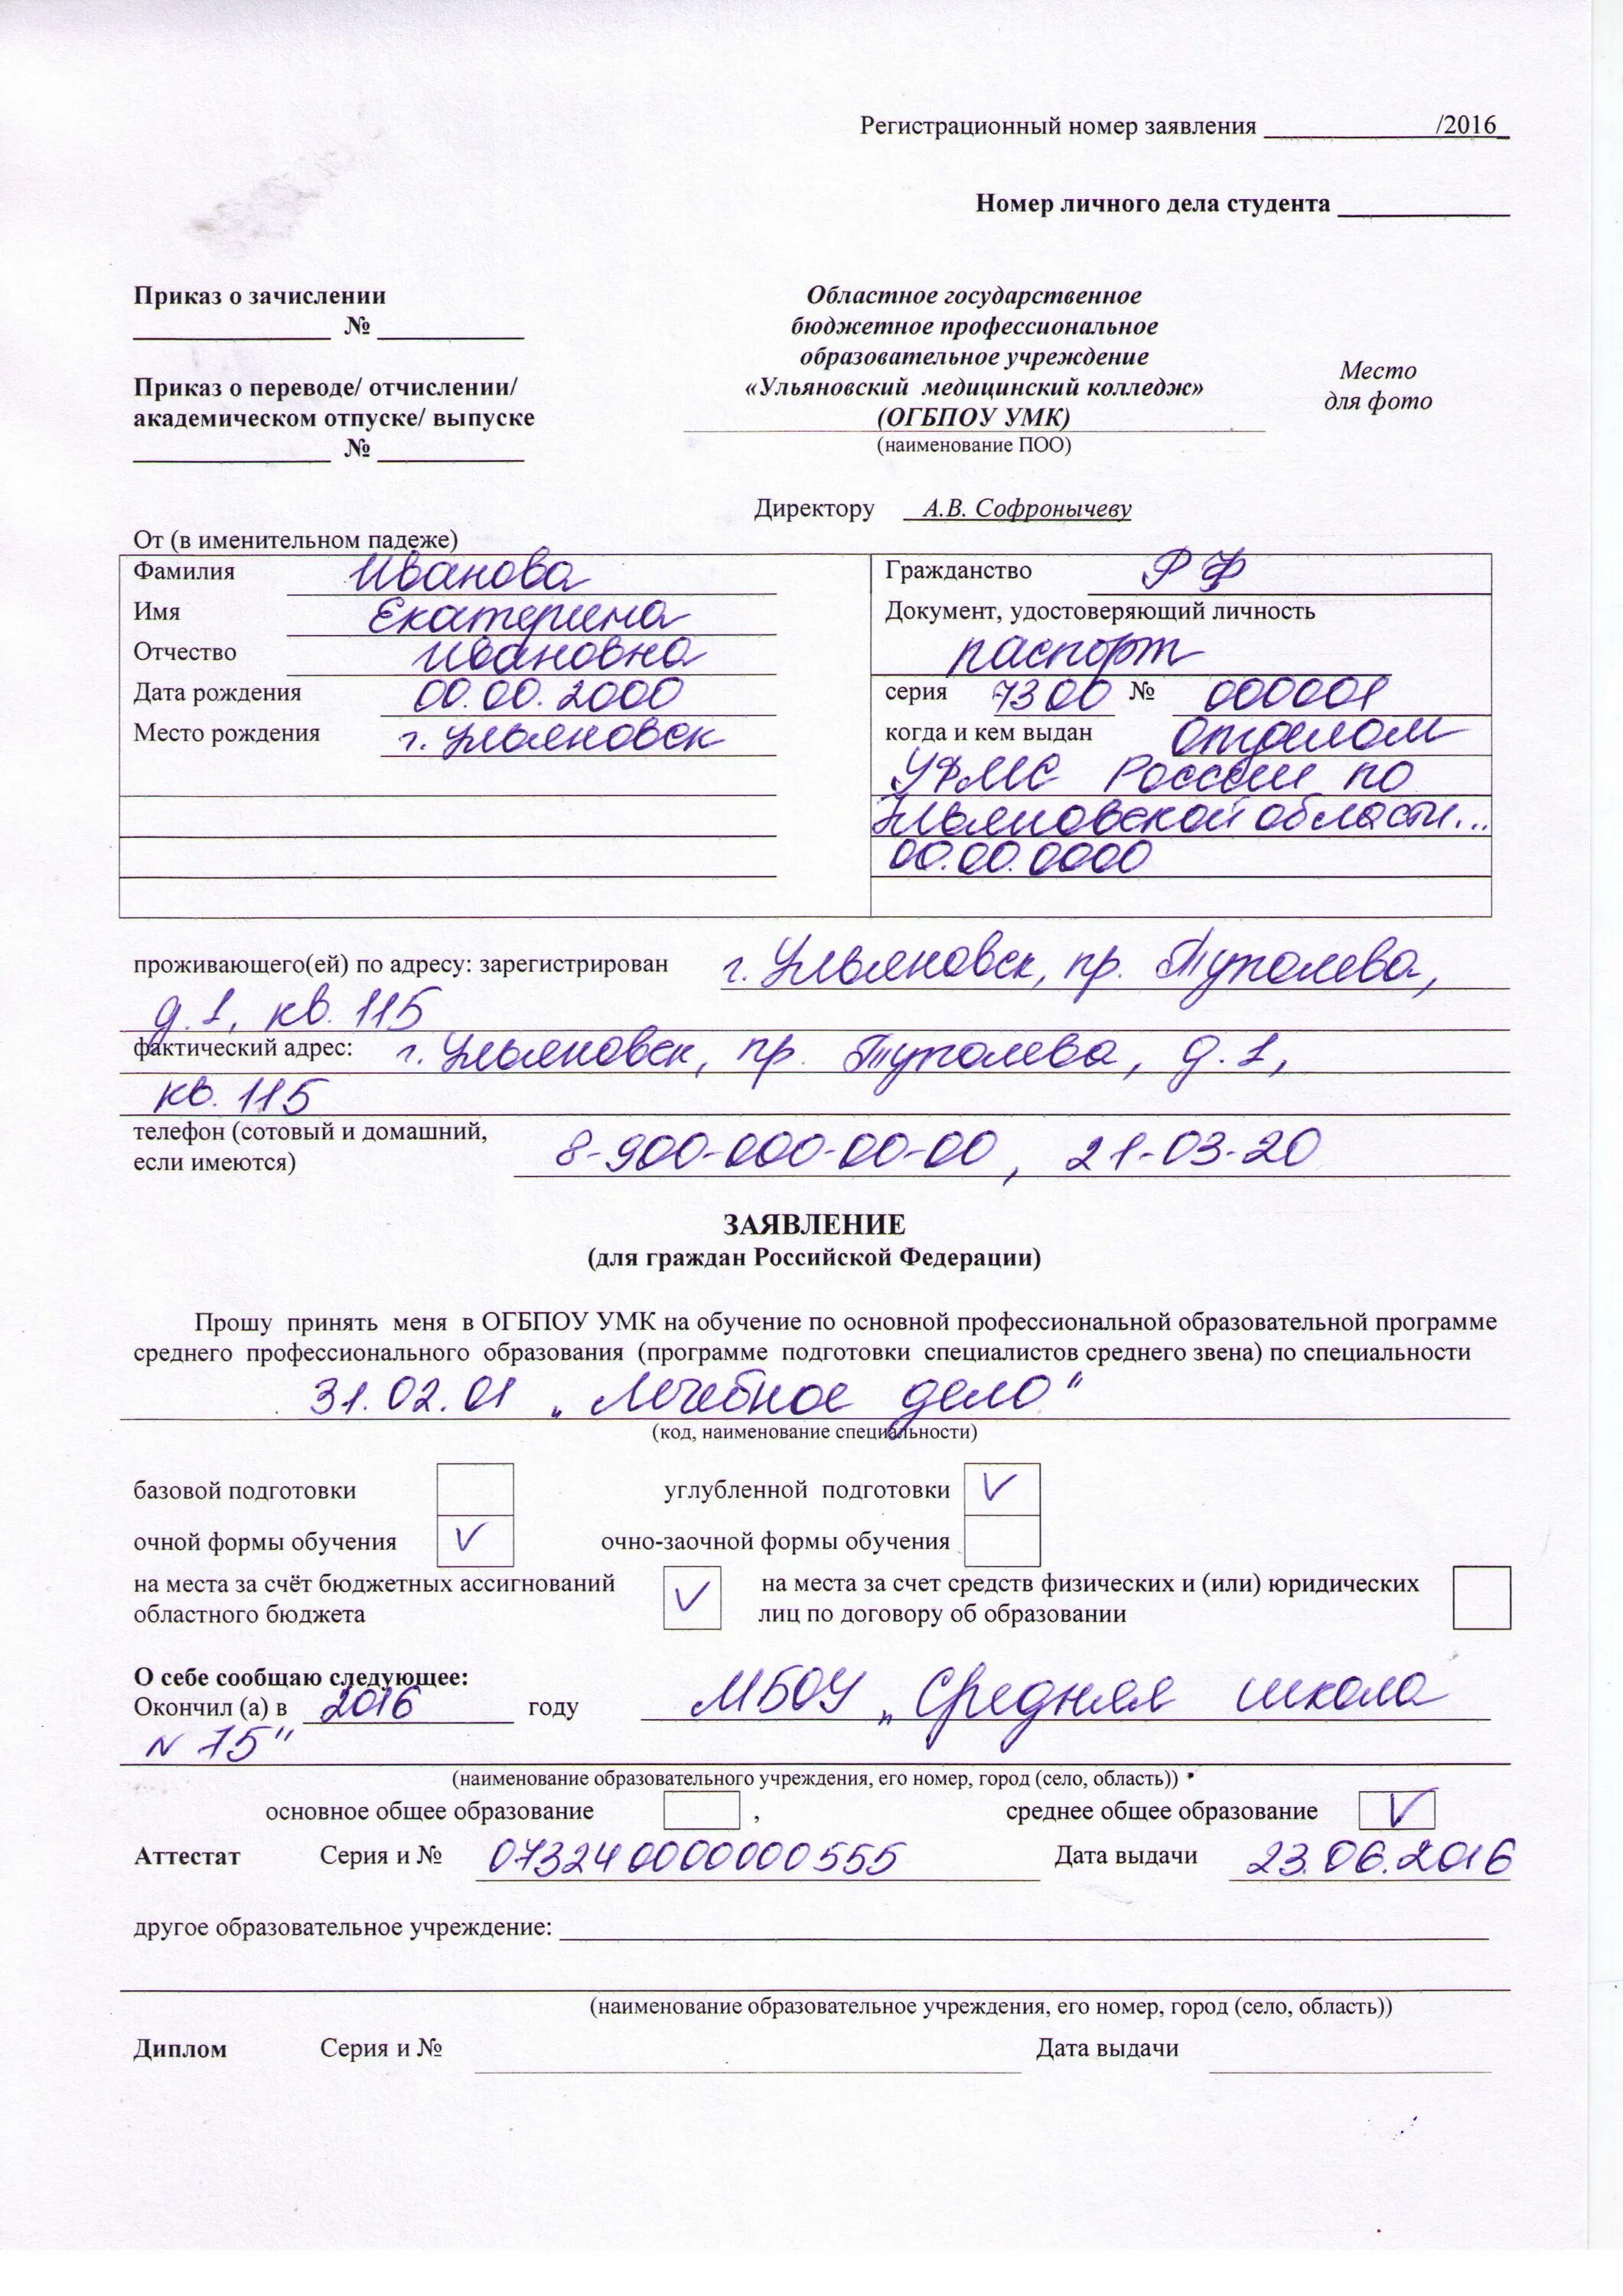 Регистрационный номер заявления ____________/2016_
Номер личного дела студента ____________
Приказ о зачислении
______________ № __________
Приказ о переводе/ отчислении/
академическом отпуске/ выпуске
______________ № __________
Областное государственное
бюджетное профессиональное
образовательное учреждение
«Ульяновский медицинский колледж»
(ОГБПОУ УМК)
(наименование ПОО)
Место
для фото
Директору А.В. Софронычеву
От (в именительном падеже)
Фамилия Иванова
Имя Екатерина
Отчество Ивановна
Дата рождения 00.00.2000
Место рождения г. Ульяновск
Гражданство РФ
Документ, удостоверяющий личность
паспорт
серия 7300 № 000001
когда и кем выдан Отделом
УФМС России по
Ульяновской области...
00.00.0000
проживающего(ей) по адресу: зарегистрирован г. Ульяновск, пр. Туполева,
д.1, кв. 115
фактический адрес: г. Ульяновск, пр. Туполева, д.1,
кв. 115
телефон (сотовый и домашний,
если имеются) 8-900-000-00-00, 21-03-20
ЗАЯВЛЕНИЕ
(для граждан Российской Федерации)
Прошу принять меня в ОГБПОУ УМК на обучение по основной профессиональной образовательной программе
среднего профессионального образования (программе подготовки специалистов среднего звена) по специальности
31.02.01 „Лечебное дело"
(код, наименование специальности)
базовой подготовки углубленной подготовки V
очной формы обучения V очно-заочной формы обучения
на места за счёт бюджетных ассигнований
областного бюджета V
на места за счет средств физических и (или) юридических
лиц по договору об образовании
О себе сообщаю следующее:
Окончил (а) в 2016 году МБОУ „Средняя школа
N 75"
(наименование образовательного учреждения, его номер, город (село, область))
основное общее образование , среднее общее образование V
Аттестат Серия и № 07324 0000000555 Дата выдачи 23.06.2016
другое образовательное учреждение:
(наименование образовательное учреждения, его номер, город (село, область))
Диплом Серия и № Дата выдачи